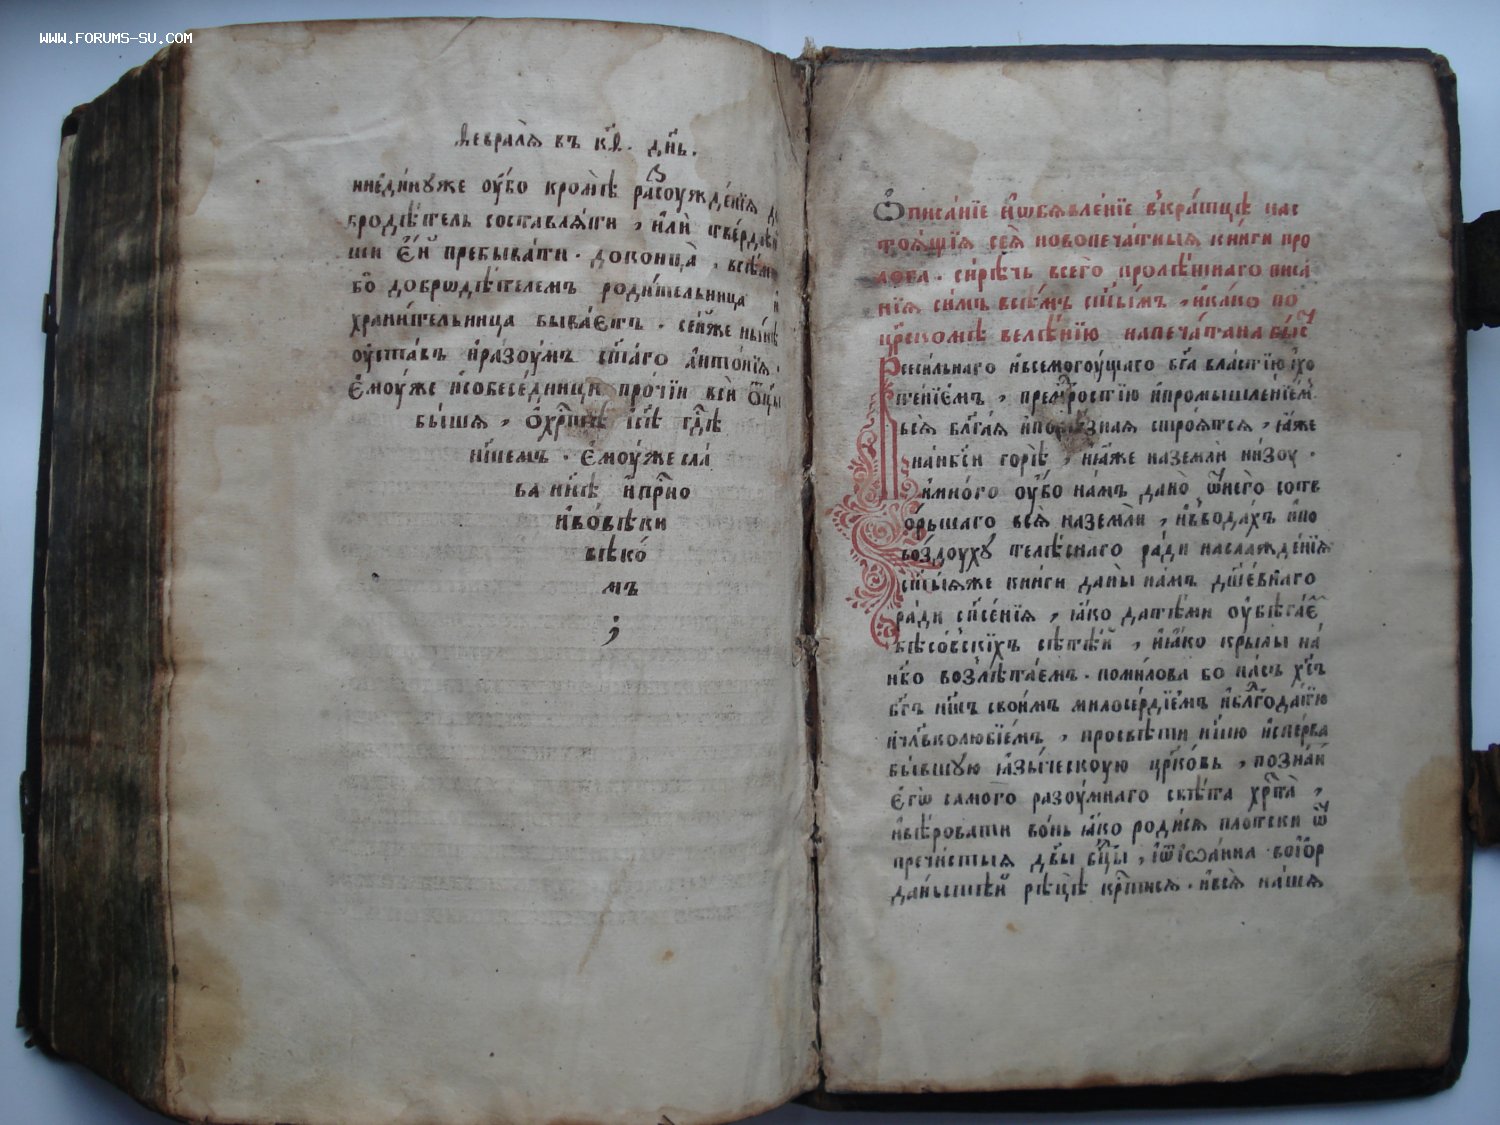 WWW.FORUMS-SU.COM
Ѳевралѧ въ к҃ѳ. дн҃ь.
ниеди́нꙋже оу҆́бо кромѣ ра́зсоужде́нїѧ до
бродѣ́тель составлѧ́ти, и҆лѝ тве́рдѣй
ши є҆́й пребыва́ти. доконца̀, всѣ́мъ
бо добрѡдѣ́телемъ роди́тельница и
храни́тельница быва́етъ. се́й же ны́нѣ
оу҆ста́въ и҆ра́зоумъ ст҃а́го а҆нто́нїѧ.
є҆моу́же и҆собесѣ́дницы про́чїи всѝ ѻ҆ц҃ы
бы́шѧ, ѻ҆хрⷭ҇тѣ і҆с҃ѣ гдⷭ҇ѣ
на́шемъ. є҆моу́же сла́
ва нн҃ѣ и҆прⷭ҇но
и҆во́вѣки
вѣко́
мъ
;
Ѡ҆писа́нїе и҆ѡбъѧвле́нїе вкра́тцѣ нас
тоѧ́щїѧ сеѧ̀ новопеча́тныѧ кни́ги про
лога. си́рѣчь всего̀ пролѣ́ннаго писа́
нїѧ си́мъ всѣ́мъ ст҃ы́мъ, и҆ка́ко по
црⷭ҇комꙋ велѣ́нїю напеча́тана бы́сⷮ
Всеси́льнаго и҆всемогоу́щаго бг҃а вла́стїю и҆хо
тѣ́нїемъ, премⷣростїю и҆промышле́нїемъ
всѧ̀ бл҃га́ѧ и҆поле́знаѧ строѧ́тсѧ, ꙗ҆́же
на нб҃сѝ горѣ̀, и҆ꙗ҆́же наземлѝ ни́зоу.
и҆мно́го оу҆́бо на́мъ дано̀ ѿнего̀ сотв
о́рьшаго всѧ̀ наземлѝ, и҆вво́дахъ и҆по
во́здоухꙋ тѣле́снаго ра́ди наслажде́нїѧ
ст҃ы́ѧже кни́ги даны̀ на́мъ дш҃е́внаго
ра́ди сп҃се́нїѧ, ꙗ҆́ко да тѣ́ми оу҆бѣга́є
бѣсо́вскїхъ сѣ́тѣй, и҆ꙗ҆́ко кры́лы на́
нб҃о возлѣта́емъ. поми́лова бо на́съ хрⷭ҇тъ
бг҃ъ на́шъ свои́мъ милосе́рдїемъ и҆блгⷣода́тїю
и҆чл҃вколю́бїемъ, просвѣтѝ на́шю и҆спе́рва
бы́вшꙋю ꙗ҆зы́ческоую цр҃ковь, позна́й
є҆гѡ̀ самого̀ разоу́мнаго свѣ́та хрⷭ҇та̀,
и҆вѣ́ровати во́нь ꙗ҆́ко роди́сѧ пло́тски ѿ
пречⷭ҇тыѧ дв҃ы бц҃ы, и҆ѿїѡа́нна во і҆ор
да́ньстѣй рѣцѣ̀ крⷭ҇тисѧ. и҆всѧ̀ на́шѧ